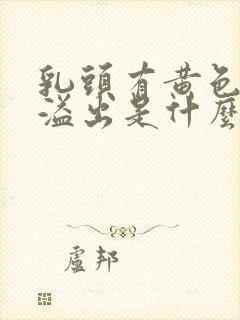 乳頭有黃色
溢出是什麼
盧邦